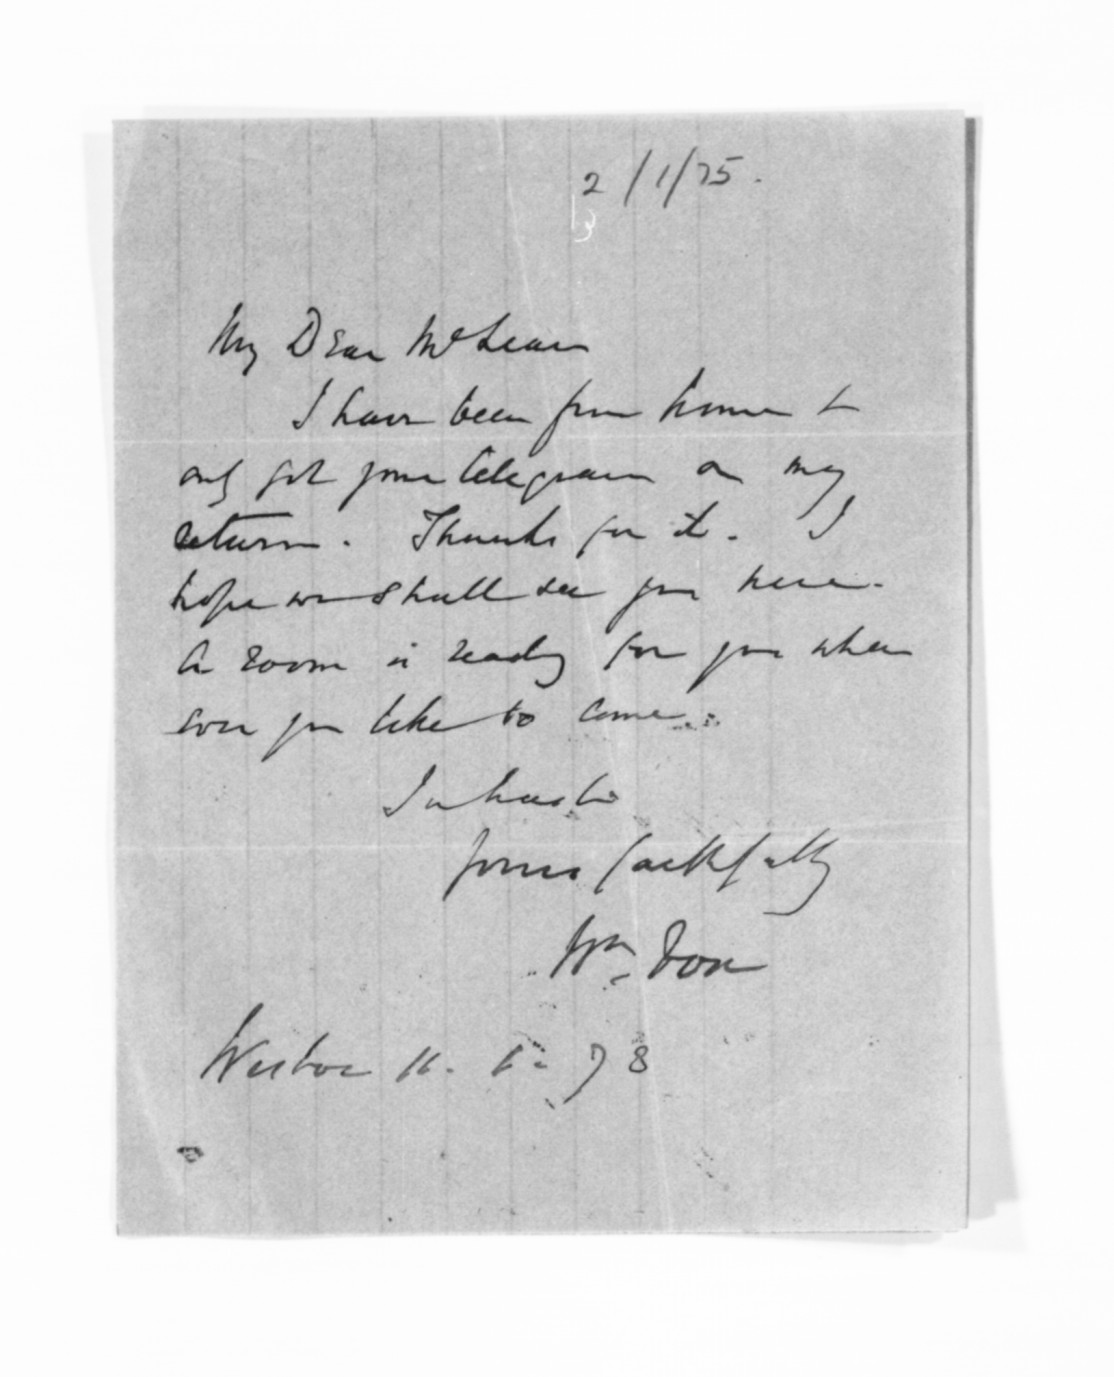 2/1/75.
3
My Dear McLean
I have been from home &
only got your telegram on my
return. Thanks for it. I
hope we shall see you here.
A room is ready for you when
ever you like to come.
In haste
Yours faithfully
Wm Fox
Westoe 11. 1. 78